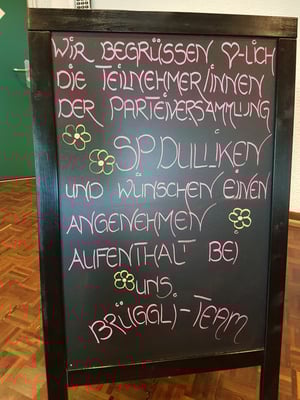 WIR BEGRÜSSEN ♡-LICH
DIE TEILNEHMER/INNEN
DER PARTEIVERSAMMLUNG
SP DULLIKEN
UND WÜNSCHEN EINEN
ANGENEHMEN
AUFENTHALT BEI
UNS.
BRÜGGLI-TEAM